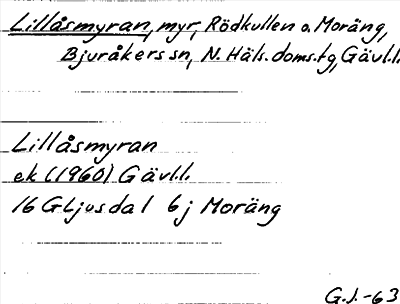 Lillåsmyran, myr, Rödkullen o. Moräng,
Bjuråkers sn, N. Häls. doms.tg, Gävl.l.
Lillåsmyran
ek (1960) Gävl.l.
16 G Ljusdal 6j Moräng
G.J.-63